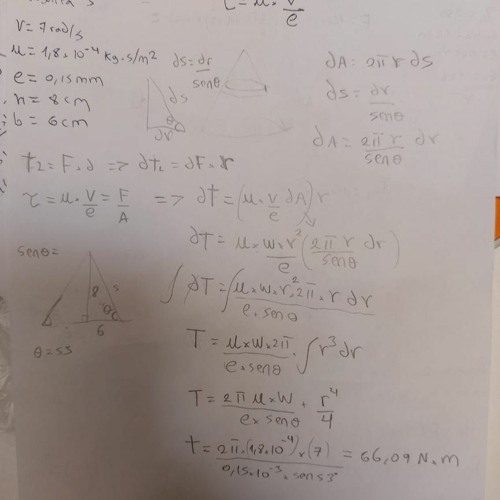 τ = μ · V/e
V = 7 rad/s
μ = 1,8 × 10⁻⁴ kg·s/m²
e = 0,15 mm
h = 8 cm
b = 6 cm
ds = dr/senθ
ds
θ
dr
dA = 2π r ds
ds = dr/senθ
dA = 2π r/senθ dr
T₂ = F·d => dt₂ = dF·r
τ = μ · V/e = F/A => dt = (μ · V/e dA) r
dT = μ × w × r²/e (2π r/senθ dr)
∫ dT = ∫ μ × w × r² 2π × r dr/e × senθ
senθ =
8
s
θ
6
θ = 53
T = μ × w × 2π/e × senθ · ∫ r³ dr
T = 2π μ × W/e × senθ · r⁴/4
t = 2π · (1,8 × 10⁻⁴) × (7)/0,15 × 10⁻³ × sen 53° = 66,09 N·m